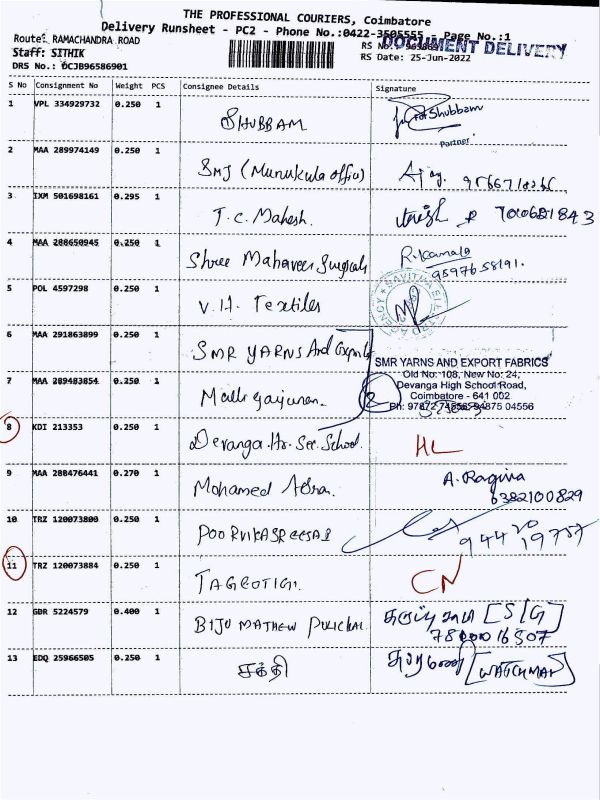 THE PROFESSIONAL COURIERS, Coimbatore
Delivery Runsheet - PC2 - Phone No.:0422-3505555 - Page No.:1
Route: RAMACHANDRA ROAD
DOCUMENT DELIVERY
Staff: SITHIK RS No.:
DRS No.: DCJB96586901 RS Date: 25-Jun-2022
S No Consignment No Weight PCS Consignee Details Signature
1 VPL 334929732 0.250 1 SHUBBAM For Shubbam
Partner
2 MAA 289974149 0.250 1 SMJ (Munukula office) Ajay.
3 IXM 501698161 0.295 1 T.C. Mahesh.
4 MAA 288650945 0.250 1 Shree Mahaveer Surgicals R. Kamala
9597658191.
5 POL 4597298 0.250 1 V.H. Textiles
6 MAA 291863899 0.250 1 SMR YARNS And Exports
SMR YARNS AND EXPORT FABRICS
Old No: 108, New No: 24,
7 MAA 289483854 0.250 1 Devanga High School Road,
Coimbatore - 641 002
Ph: 04556
8 KDI 213353 0.250 1 Devanga.Hr.Sec.School. HL
9 MAA 288476441 0.270 1 Mohamed A. Ragina
6382100829
10 TRZ 120073800 0.250 1 POORVIKASREESAI
94420 19757
11 TRZ 120073884 0.250 1 CN
12 GDR 5224579 0.400 1 BIJU MATHEW PULICKAL [S/G]
13 EDQ 25966505 0.250 1 சக்தி [WATCHMAN]